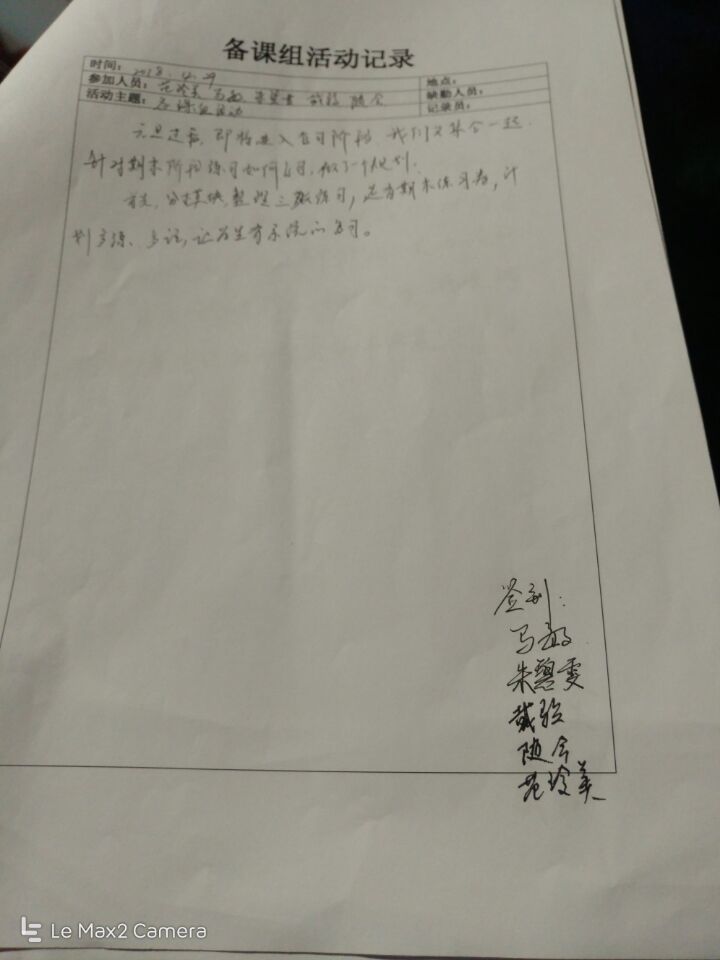 备课组活动记录
时间: 2018.4.29
地点:
参加人员: 范玲美 马敏 朱碧雯 戴骀 随会
缺勤人员:
活动主题: 备课组活动
记录员:
元旦过后,即将进入复习阶段,我们又集合一起.
针对期末阶段练习如何复习,做了一个规划.
首先,分模块整理三张练习,还有期末练习卷,计
划多练、多说,让学生有系统的复习。
签到:
马敏
朱碧雯
戴
随会
范玲美
Le Max2 Camera